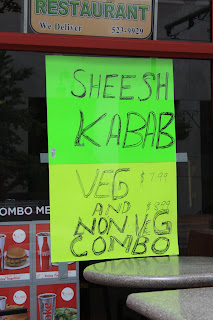 RESTAURANT
We Deliver 523-9929
SHEESH
KABAB
VEG $7.99
AND $8.99
NON VEG
COMBO
OMBO ME